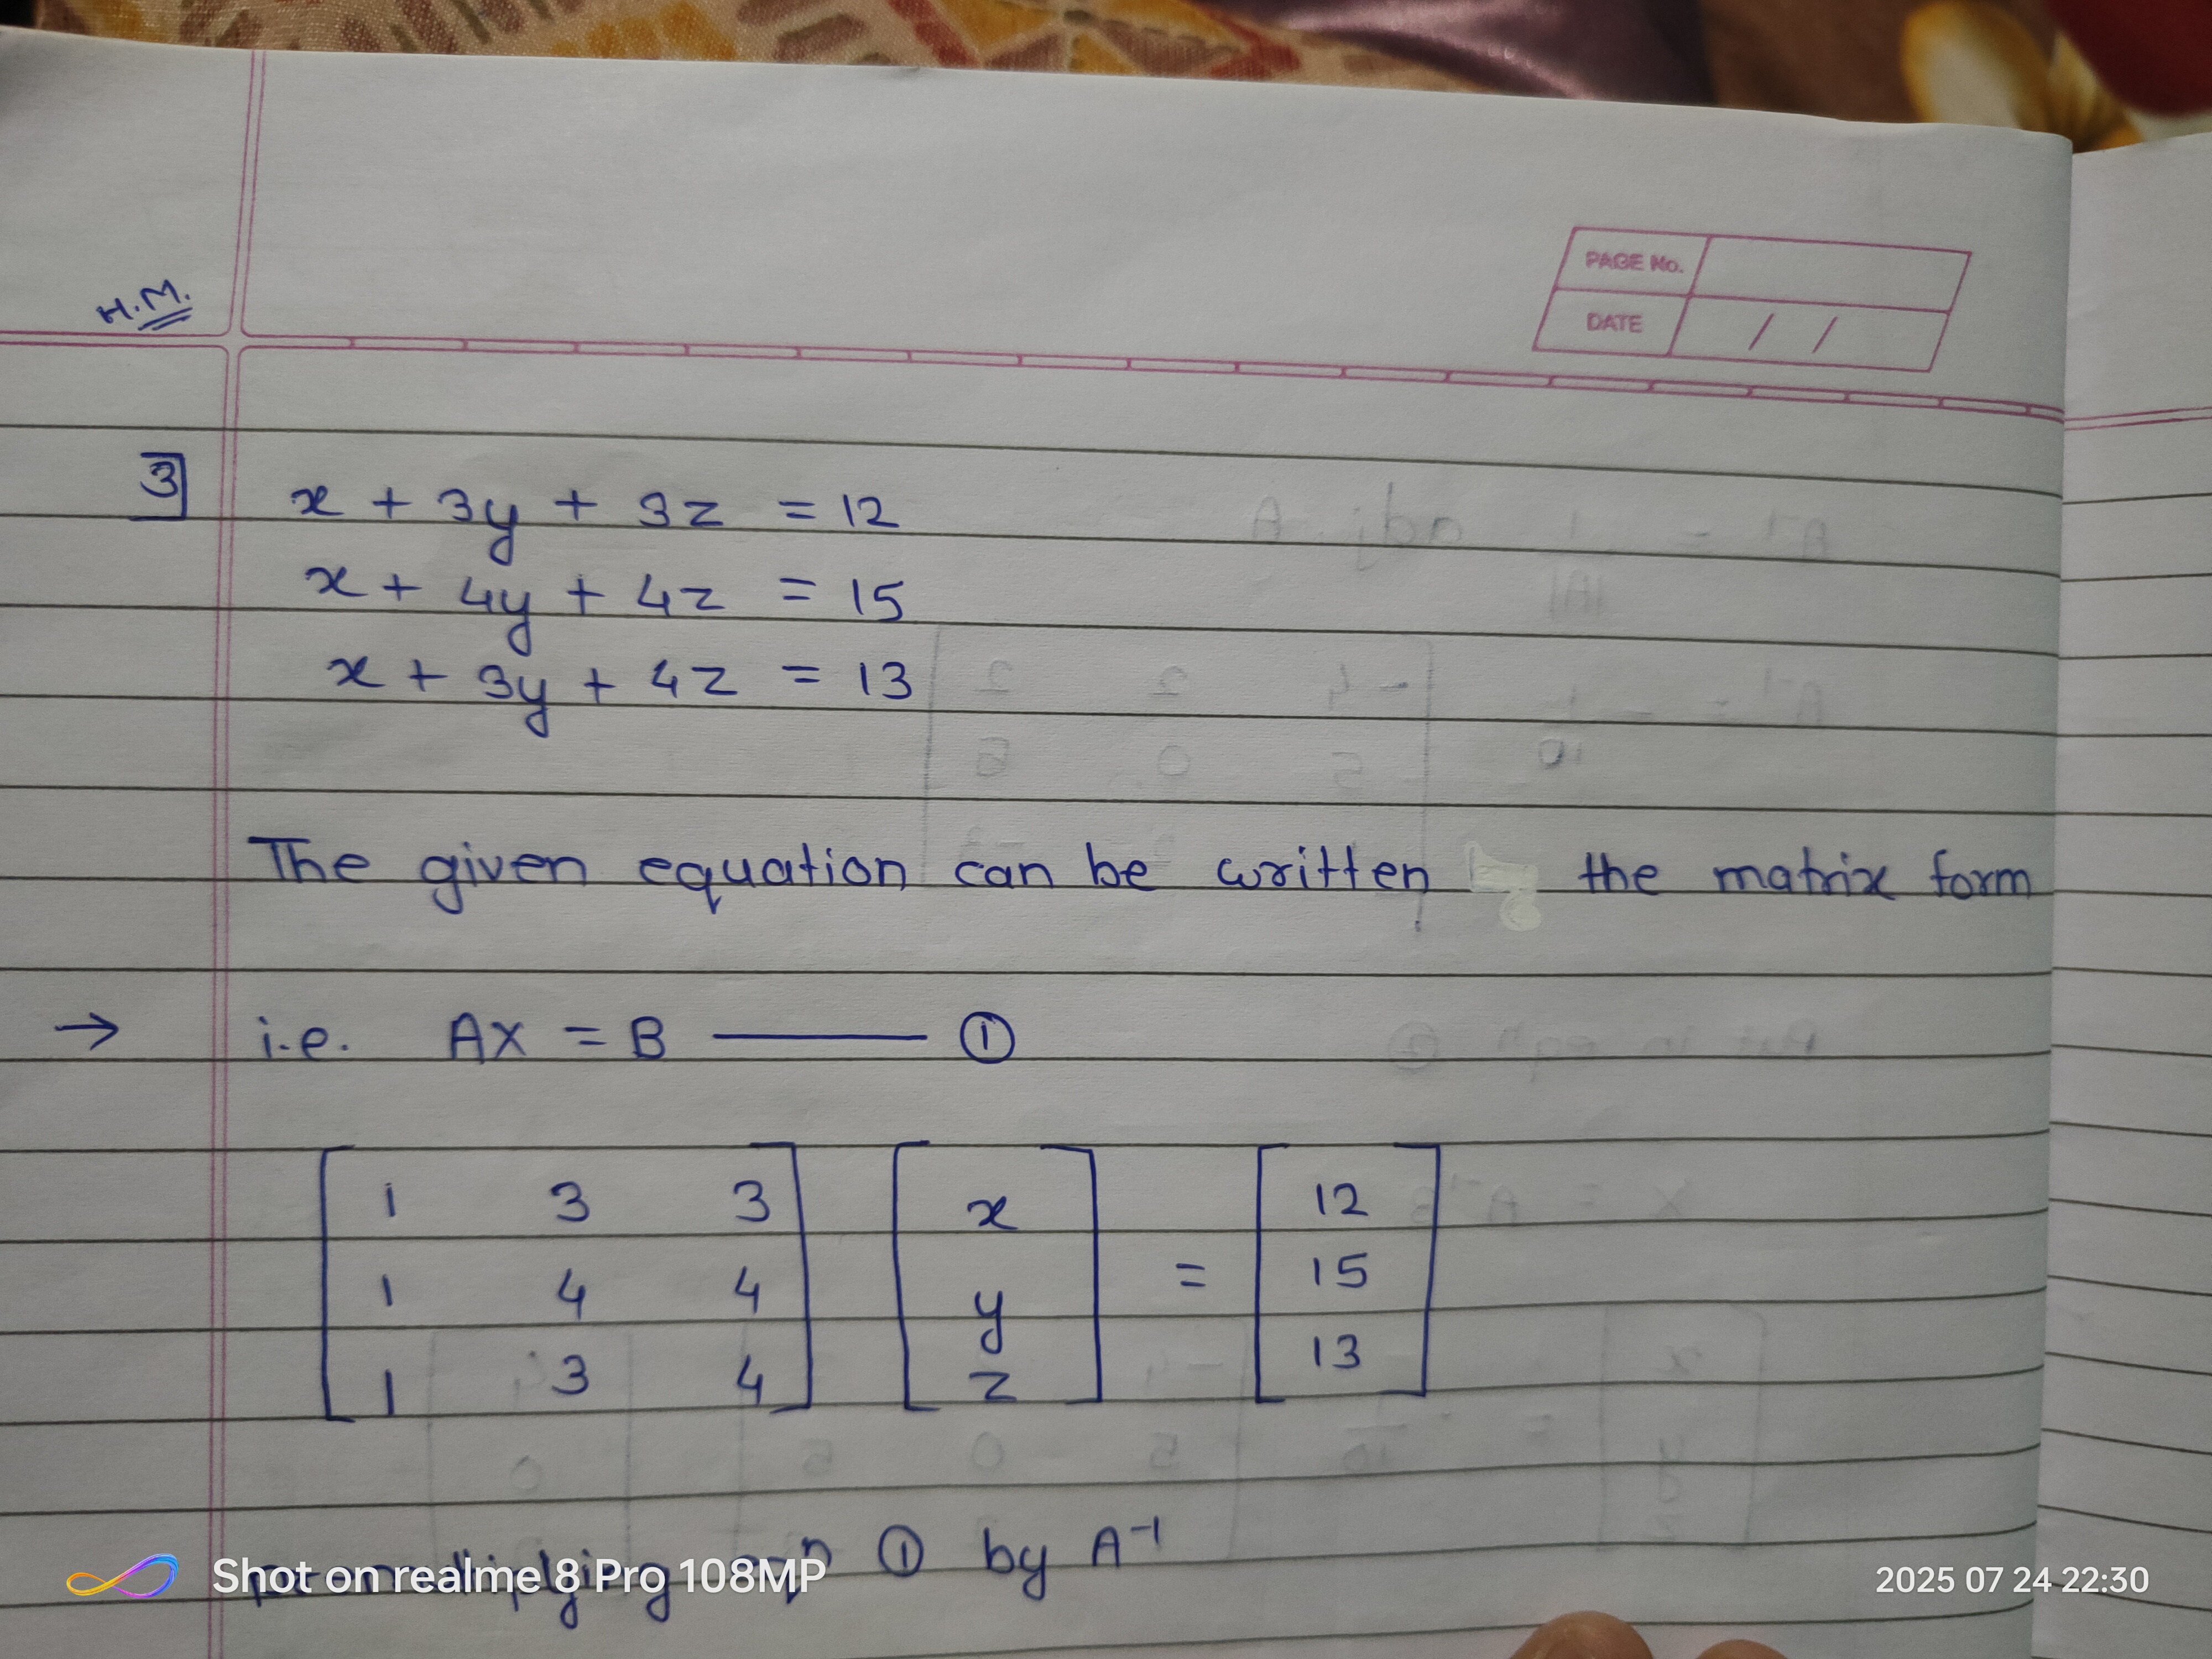 H.M.
PAGE No.
DATE / /
3] x + 3y + 3z = 12
x + 4y + 4z = 15
x + 3y + 4z = 13
The given equation can be written the matrix form
→ i.e. AX = B ——— ①
1 3 3 x 12
1 4 4 y = 15
1 3 4 z 13
premultiplying eqn ① by A⁻¹
Shot on realme 8 Pro 108MP
2025 07 24 22:30